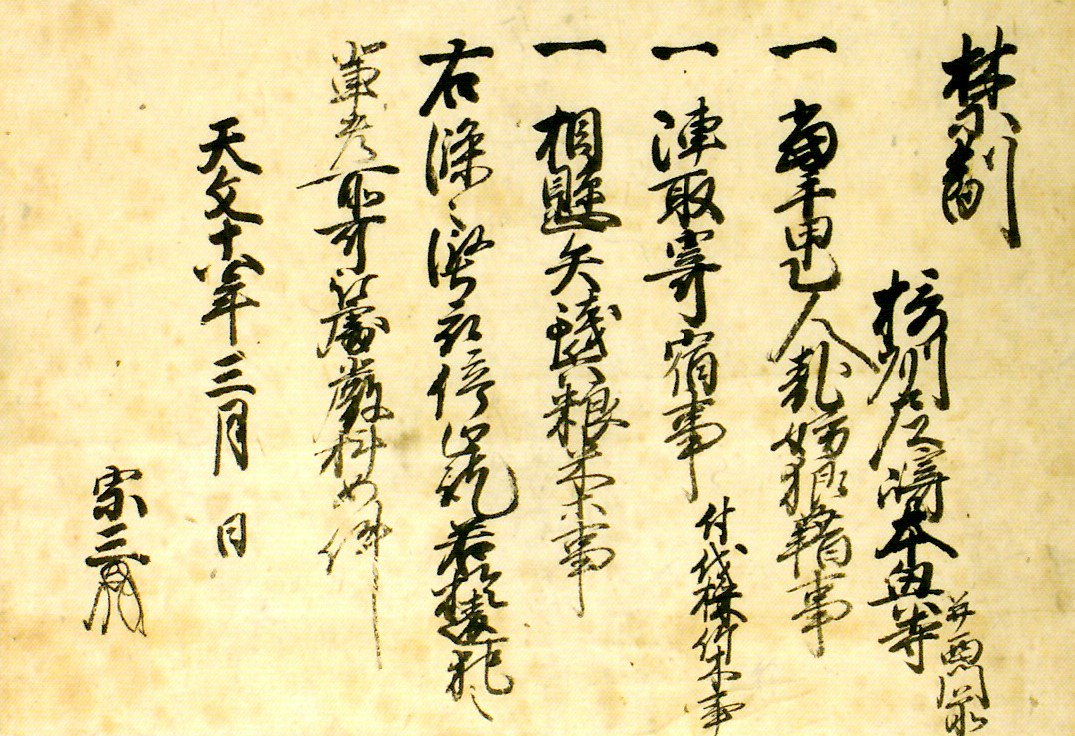 禁制
摂州尼崎本興寺 并西門前
一 當手甲乙人乱妨狼藉事
一 陣取寄宿事 付伐採竹木事
一 相懸矢銭兵粮米等事
右條々堅令停止訖若於違犯之
輩者可処厳科如件
天文十八年三月 日
宗三